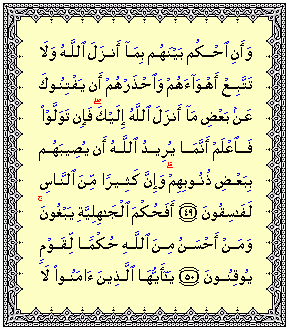 وَأَنِ ٱحْكُم بَيْنَهُم بِمَآ أَنزَلَ ٱللَّهُ وَلَا
تَتَّبِعْ أَهْوَآءَهُمْ وَٱحْذَرْهُمْ أَن يَفْتِنُوكَ
عَنۢ بَعْضِ مَآ أَنزَلَ ٱللَّهُ إِلَيْكَ ۖ فَإِن تَوَلَّوْا۟
فَٱعْلَمْ أَنَّمَا يُرِيدُ ٱللَّهُ أَن يُصِيبَهُم
بِبَعْضِ ذُنُوبِهِمْ ۗ وَإِنَّ كَثِيرًا مِّنَ ٱلنَّاسِ
لَفَٰسِقُونَ ﴿٤٩﴾ أَفَحُكْمَ ٱلْجَٰهِلِيَّةِ يَبْغُونَ ۚ
وَمَنْ أَحْسَنُ مِنَ ٱللَّهِ حُكْمًا لِّقَوْمٍ
يُوقِنُونَ ﴿٥٠﴾ يَٰٓأَيُّهَا ٱلَّذِينَ ءَامَنُوا۟ لَا